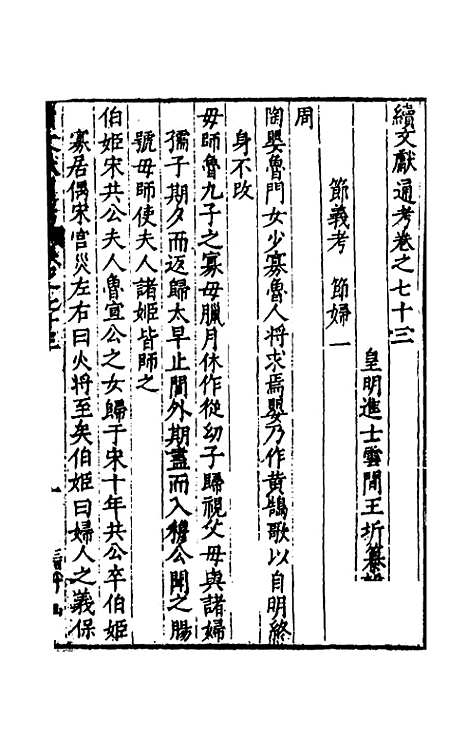 續文獻通考卷之七十三
皇明進士雲間王圻纂輯
節義考 節婦一
周
陶嬰魯門女少寡魯人將求焉嬰乃作黃鵠歌以自明終
身不改
母師魯九子之寡母臘月休作從幼子歸視父母與諸婦
孺子期夕而返歸太早止閭外期盡而入穆公聞之賜
號母師使夫人諸姬皆師之
伯姬宋共公夫人魯宣公之女歸于宋十年共公卒伯姬
寡居偶宋宫災左右曰火將至矣伯姬曰婦人之義保